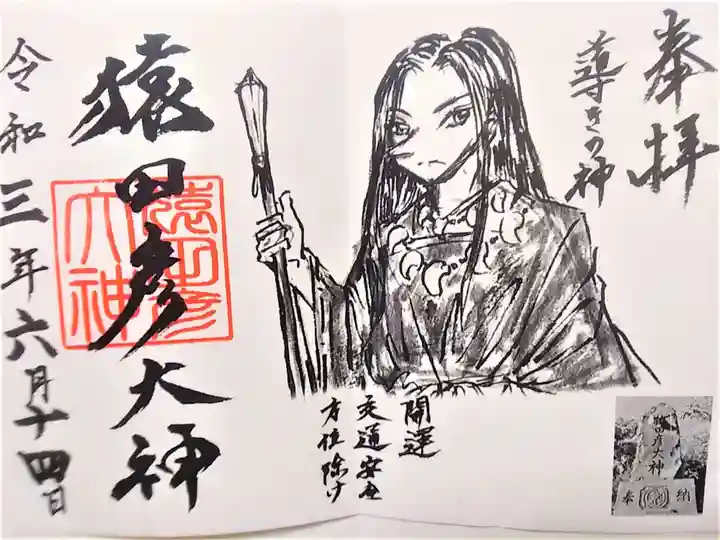 奉拝
導きの神
開運
交通安全
方位除け
猿田彦大神
猿田彦
大神
令和三年六月十四日
猿田彦大神
奉
納